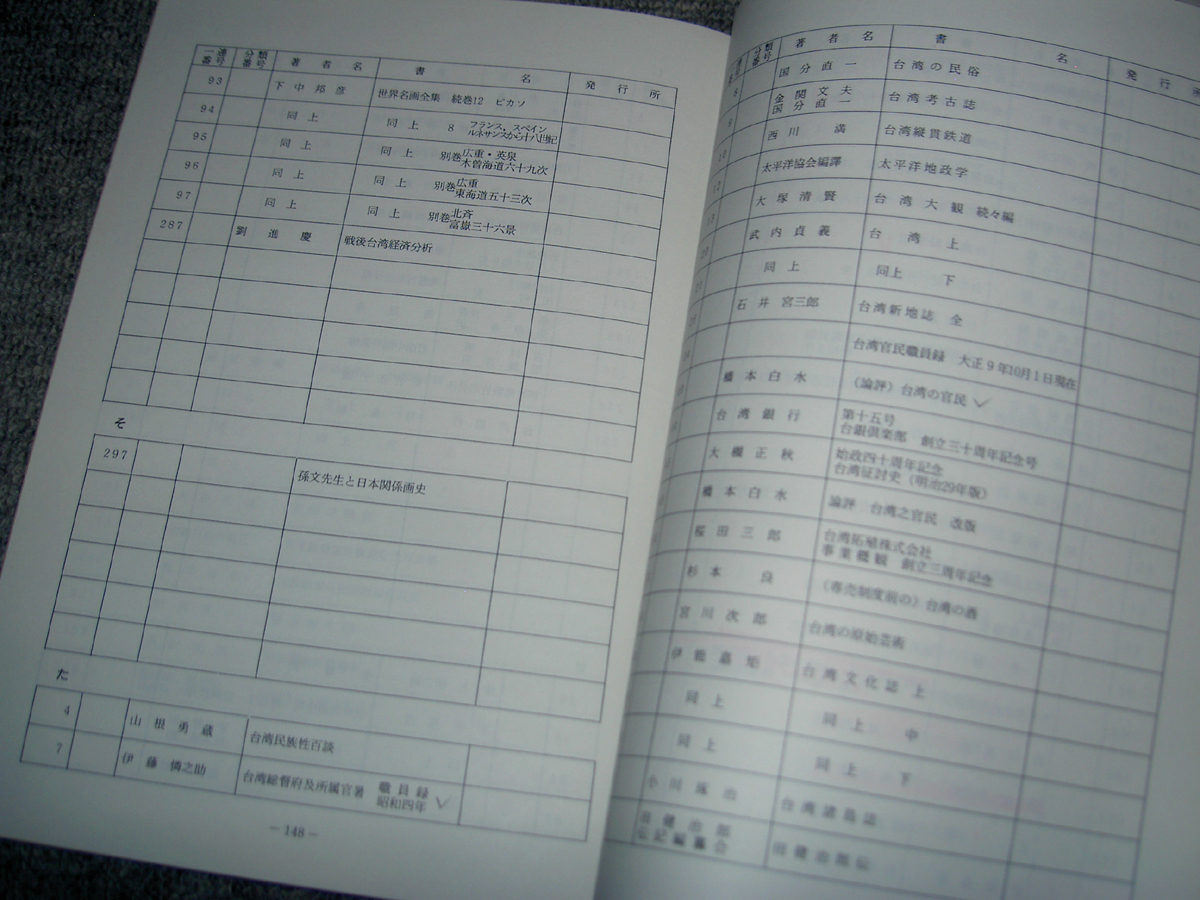 一連番号 分類番号 著者名 書名 発行所
93 下中邦彦 世界名画全集 続巻12 ピカソ
94 同上 同上 8 フランス，スペイン
ルネサンスから十八世紀
95 同上 同上 別巻 広重・英泉
木曽海道六十九次
96 同上 同上 別巻 広重
東海道五十三次
97 同上 同上 別巻 北斉
富嶽三十六景
287 劉進慶 戦後台湾経済分析
そ
297 孫文先生と日本関係画史
た
4 山根勇蔵 台湾民族性百談
7 伊藤憐之助 台湾総督府及所属官署 職員録
昭和四年
－148－
分類番号 著者名 書名 発行所
8 国分直一 台湾の民俗
9 金関丈夫
国分直一 台湾考古誌
10 西川満 台湾縦貫鉄道
12 太平洋協会編譯 太平洋地政学
大塚清賢 台湾大観 続々編
武内貞義 台湾 上
同上 同上 下
石井宮三郎 台湾新地誌 全
台湾官民職員録 大正9年10月1日現在
橋本白水 （論評）台湾の官民
台湾銀行 第十五号
台銀倶楽部 創立三十周年記念号
大欄正秋 始政四十周年記念
台湾征討史（明治29年版）
橋本白水 論評 台湾之官民 改版
桜田三郎 台湾拓殖株式会社
事業概観 創立三周年記念
杉本良 （専売制度前の）台湾の酒
宮川次郎 台湾の原始芸術
伊能嘉矩 台湾文化誌 上
同上 同上 中
同上 同上 下
小川琢治 台湾諸島誌
田健治郎
伝記編纂会 田健治郎伝